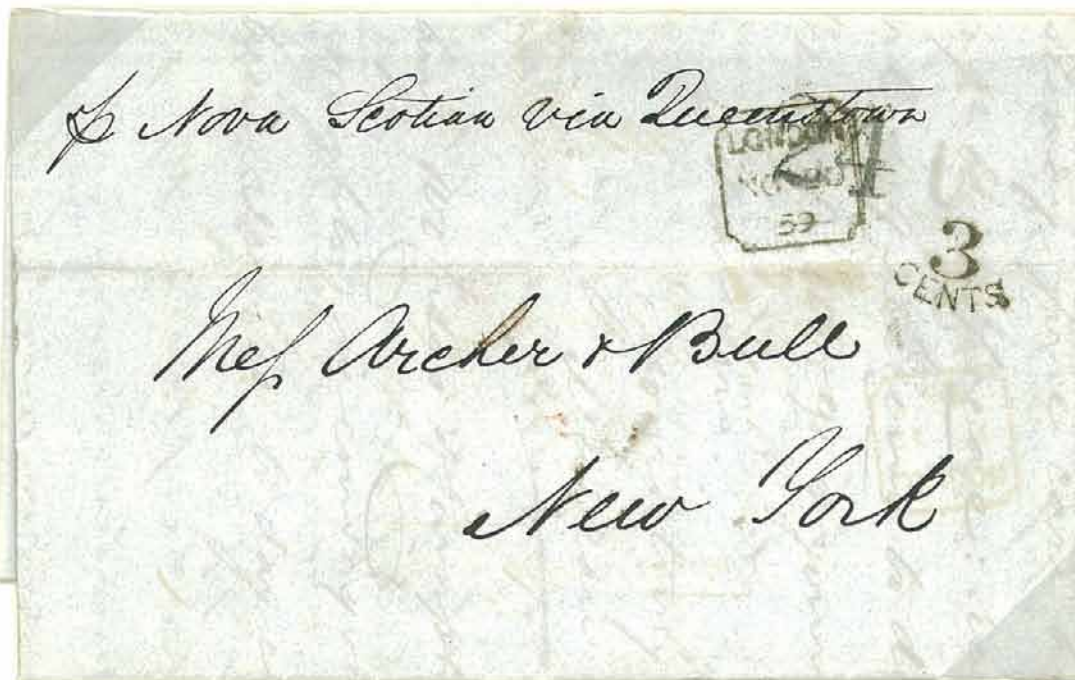 p Nova Scotian via Queenstown
LONDON
24
59
3
CENTS
Mess Archer & Bull
New York